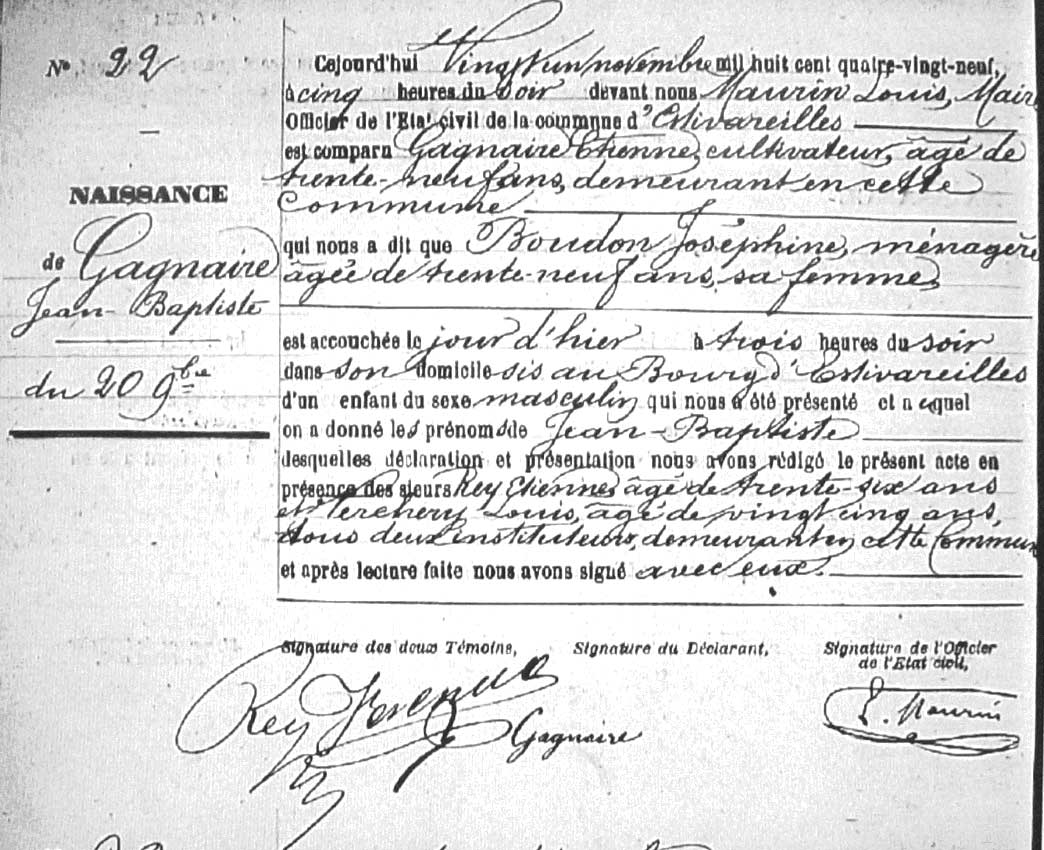 N° 22
NAISSANCE
de Gagnaire
Jean-Baptiste
du 20 9bre
Cejourd'hui Vingt un novembre mil huit cent quatre-vingt-neuf,
à cinq heures du soir devant nous Maurin Louis, Maire
Officier de l'Etat civil de la commune d'Estivareilles
est comparu Gagnaire Etienne, cultivateur, âgé de
trente-neuf ans, demeurant en cette
Commune
qui nous a dit que Boudon Joséphine, ménagère
âgée de trente-neuf ans, sa femme,
est accouchée le jour d'hier à trois heures du soir
dans son domicile sis au Bourg d'Estivareilles
d'un enfant du sexe masculin qui nous a été présenté et auquel
on a donné les prénoms de Jean-Baptiste
desquelles déclaration et présentation nous avons rédigé le présent acte en
présence des sieurs Rey Etienne, âgé de trente-six ans
et Louis, âgé de vingt cinq ans,
tous deux instituteurs, demeurant en cette Commune
et après lecture faite nous avons signé avec eux.
Signature des deux Témoins, Signature du Déclarant, Signature de l'Officier
de l'Etat civil,
Rey Gagnaire L. Maurin